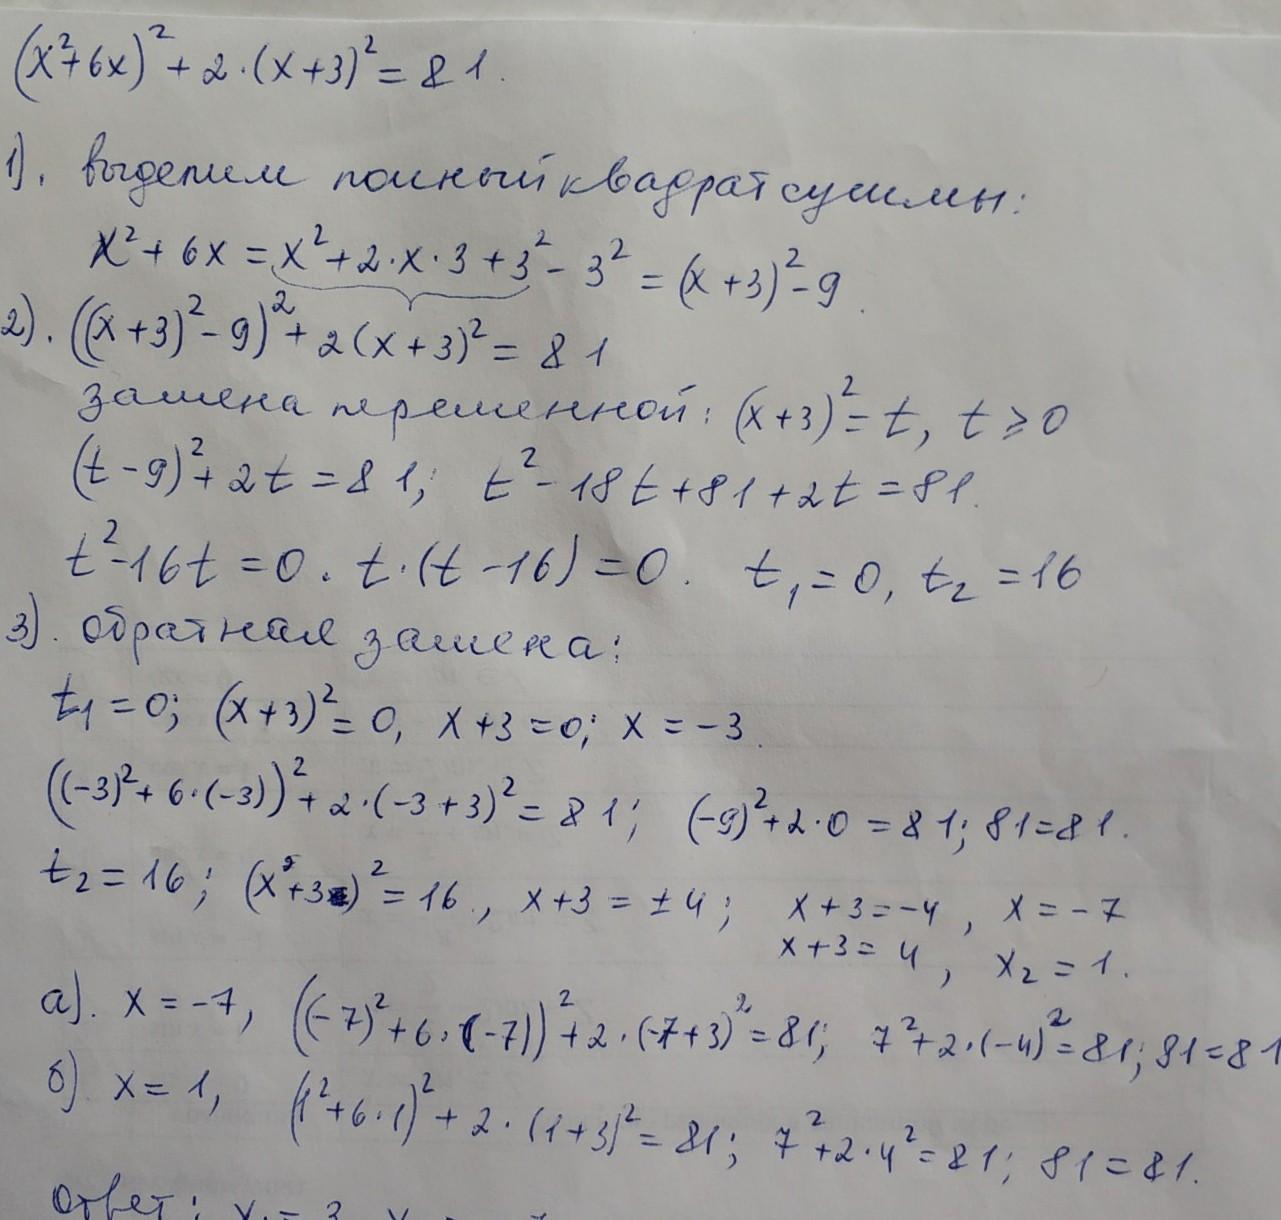 (x²+6x)²+2·(x+3)²=81.
1). выделим полный квадрат суммы:
x²+6x=x²+2·x·3+3²-3²=(x+3)²-9.
2). ((x+3)²-9)²+2(x+3)²=81
замена переменной: (x+3)²=t, t⩾0
(t-9)²+2t=81; t²-18t+81+2t=81.
t²-16t=0. t·(t-16)=0. t₁=0, t₂=16
3). обратная замена:
t₁=0; (x+3)²=0, x+3=0; x=-3.
((-3)²+6·(-3))²+2·(-3+3)²=81; (-9)²+2·0=81; 81=81.
t₂=16; (x+3)²=16, x+3=±4; x+3=-4, x=-7
x+3=4, x₂=1.
а). x=-7, ((-7)²+6·(-7))²+2·(-7+3)²=81; 7²+2·(-4)²=81; 81=81
б). x=1, (1²+6·1)²+2·(1+3)²=81; 7²+2·4²=81; 81=81.
Ответ: